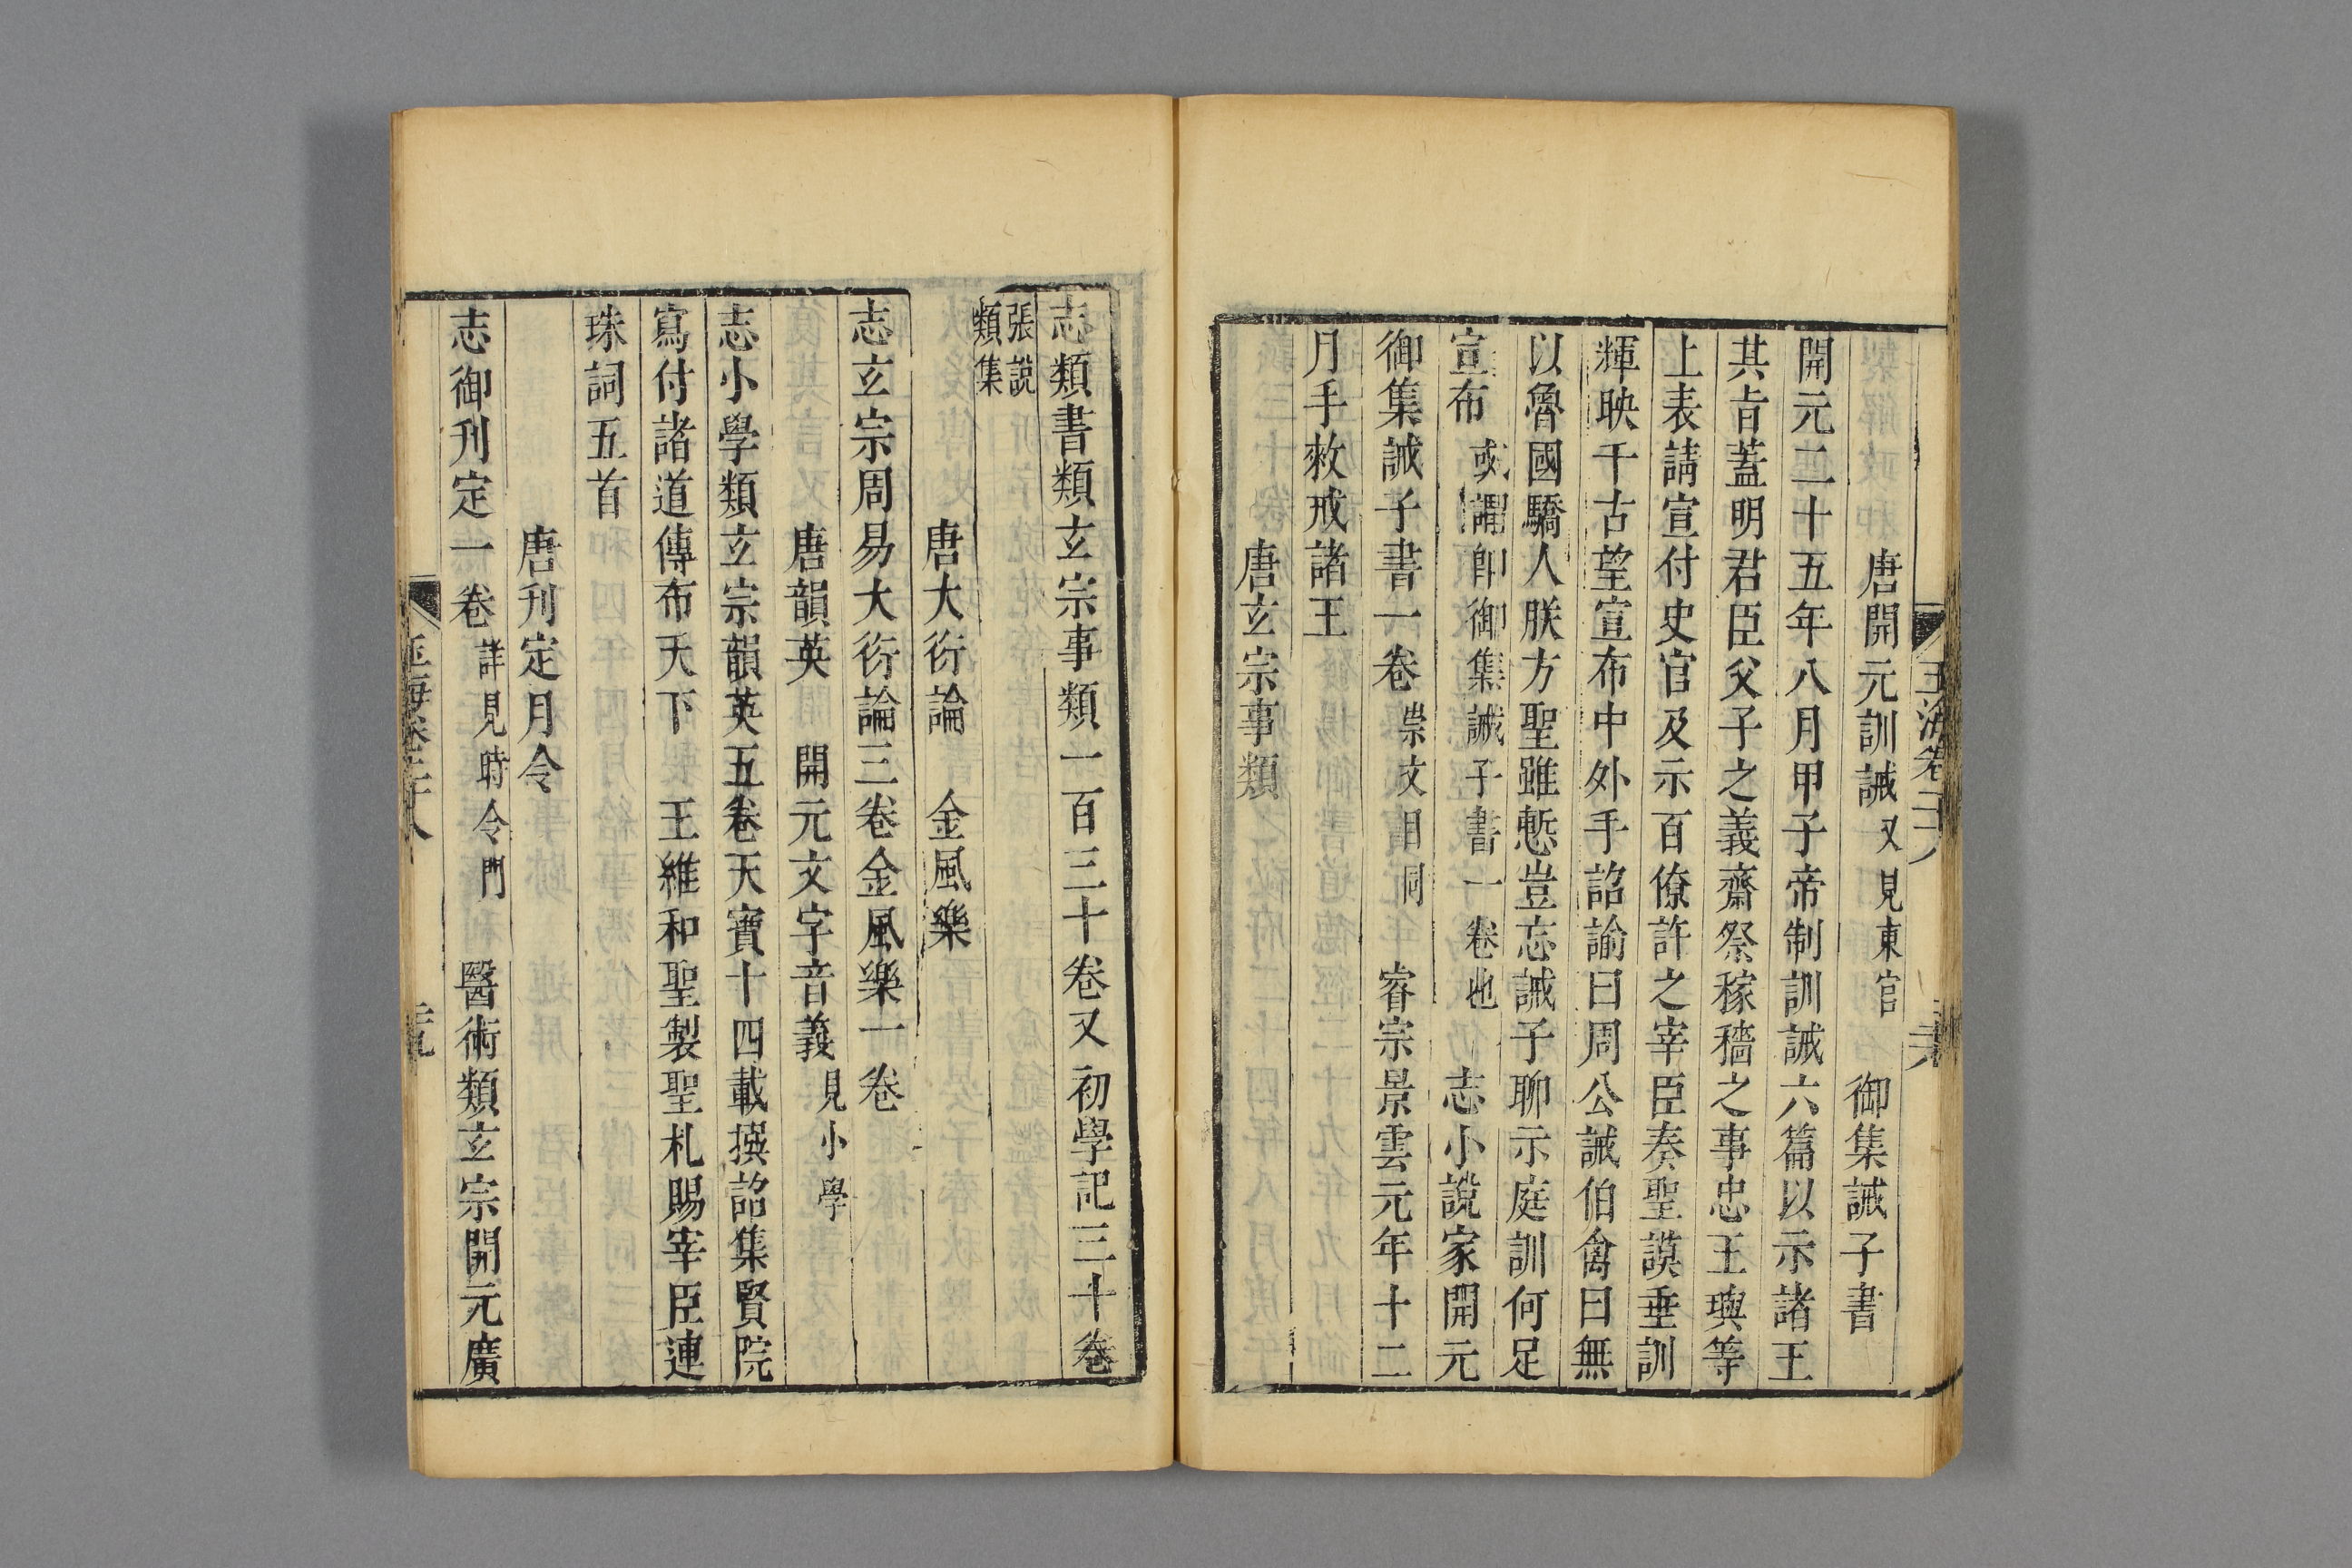 玉海卷二十八
唐開元訓誡又見東官　御集誡子書
開元二十五年八月甲子帝制訓誡六篇以示諸王
其旨蓋明君臣父子之義齋祭稼穡之事忠王璵等
上表請宣付史官及示百僚許之宰臣奏聖謨垂訓
輝映千古望宣布中外手詔諭曰周公誡伯禽曰無
以魯國驕人朕方聖雖慙豈忘誡子聊示庭訓何足
宣布或謂卽御集誡子書一卷也　志小說家開元
御集誡子書一卷崇文目同　睿宗景雲元年十二
月手敕戒諸王
唐玄宗事類
志類書類玄宗事類一百三十卷又初學記三十卷
張說
類集
唐大衍論　金風樂
志玄宗周易大衍論三卷金風樂一卷
唐韻英　開元文字音義見小學
志小學類玄宗韻英五卷天寶十四載撰詔集賢院
寫付諸道傳布天下　王維和聖製聖札賜宰臣連
珠詞五首
唐刋定月令
志御刋定一卷詳見時令門　醫術類玄宗開元廣
玉海卷二十八